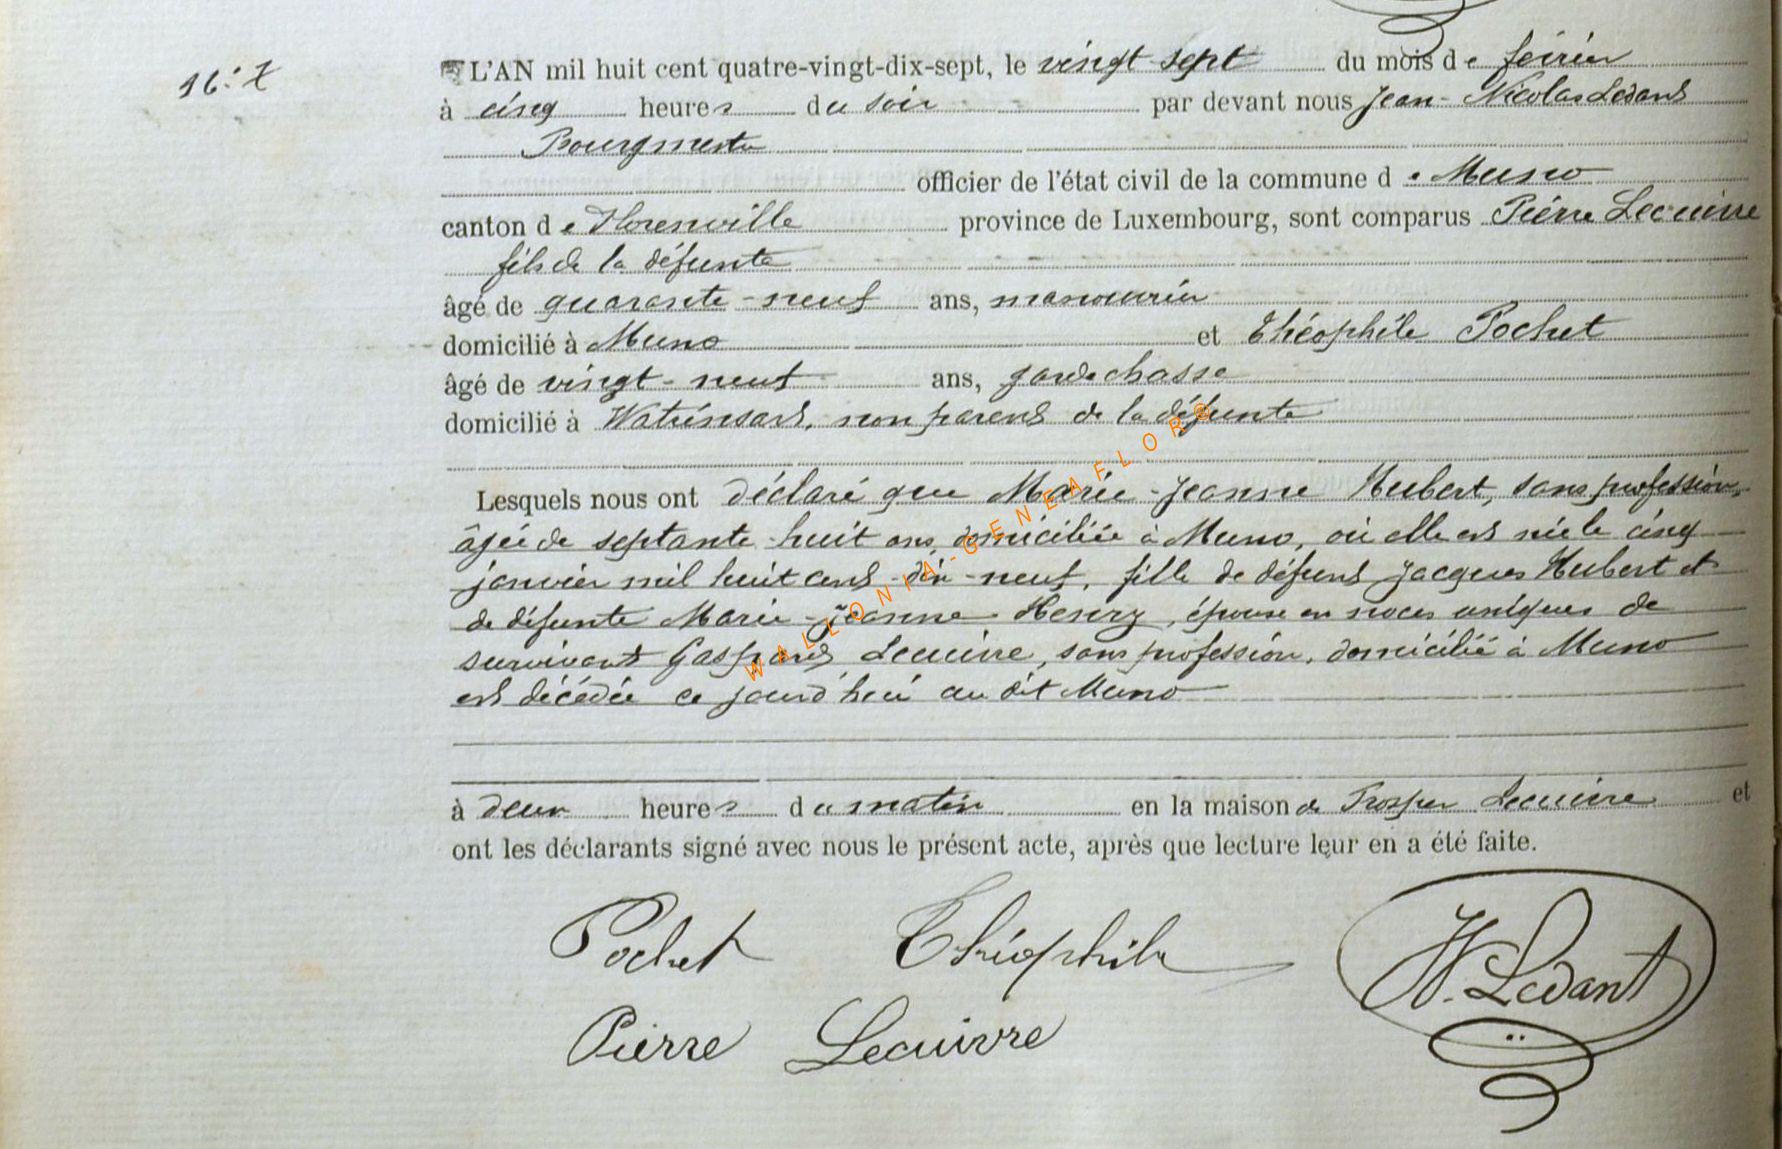 16.
L'AN mil huit cent quatre-vingt-dix-sept, le vingt sept du mois de février
à cinq heures du soir par devant nous Jean-Nicolas Ledant
Bourgmestre
officier de l'état civil de la commune de Muno
canton de Florenville province de Luxembourg, sont comparus Pierre Lecuivre
fils de la défunte
âgé de quarante-neuf ans, manouvrier
domicilié à Muno et Théophile Pochet
âgé de vingt-neuf ans, garde chasse
domicilié à Watrinsart, non parent de la défunte
Lesquels nous ont déclaré que Marie-Jeanne Hubert, sans profession,
âgée de septante-huit ans, domiciliée à Muno, où elle est née le cinq
janvier mil huit cent-dix-neuf, fille de défunt Jacques Hubert et
de défunte Marie-Jeanne Henry, épouse en noces uniques de
survivant Gaspard Lecuivre, sans profession, domicilié à Muno
est décédée ce jourd'hui au dit Muno
à deux heures du matin en la maison de Prosper Lecuivre et
ont les déclarants signé avec nous le présent acte, après que lecture leur en a été faite.
Pochet Théophile
N. Ledant
Pierre Lecuivre
WALLONIA-GENEAFLOR©